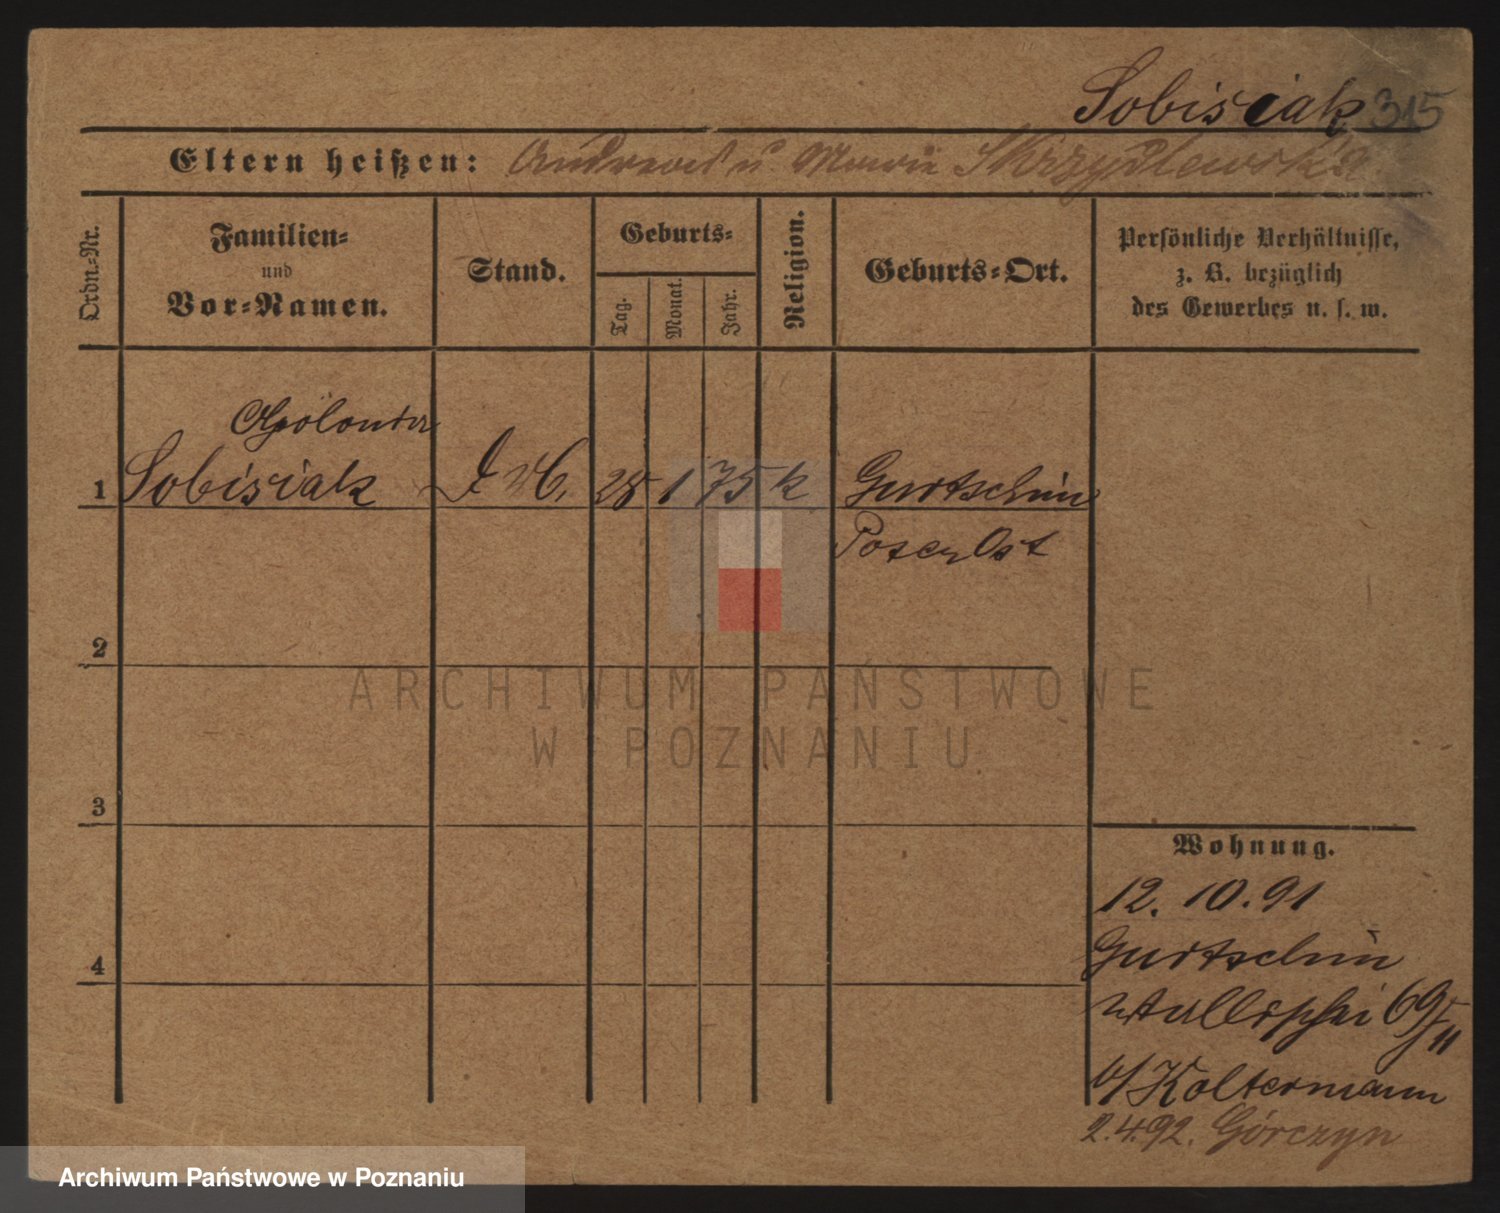 Sobisiak 315
Eltern heißen: Andreas u. Marie Skrzydlewska
Ordn.-Nr.
Familien-
und
Vor-Namen.
Stand.
Geburts-
Tag.
Monat.
Jahr.
Religion.
Geburts-Ort.
Persönliche Verhältnisse,
z. B. bezüglich
des Gewerbes u. s. w.
1
Sobisiak
28 1 75 k
Gurtschin
Posen Ost
2
ARCHIWUM PAŃSTWOWE
W POZNANIU
3
4
Wohnung.
12. 10. 91
Gurtschin
69/11
b/Koltermann
2.4.92. Górczyn
Archiwum Państwowe w Poznaniu